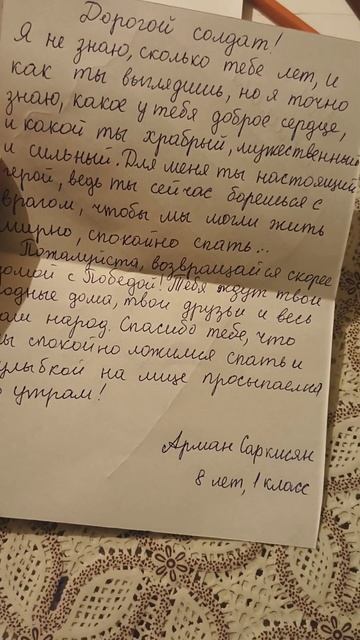 Дорогой солдат!
Я не знаю, сколько тебе лет, и
как ты выглядишь, но я точно
знаю, какое у тебя доброе сердце,
и какой ты храбрый, мужественный
и сильный. Для меня ты настоящий
герой, ведь ты сейчас борешься с
врагом, чтобы мы могли жить
мирно, спокойно спать...
Пожалуйста, возвращайся скорее
домой с Победой! Тебя ждут твои
родные дома, твои друзья и весь
наш народ. Спасибо тебе, что
мы спокойно ложимся спать и
улыбкой на лице просыпаемся
по утрам!
Арман Саркисян
8 лет, 1 класс